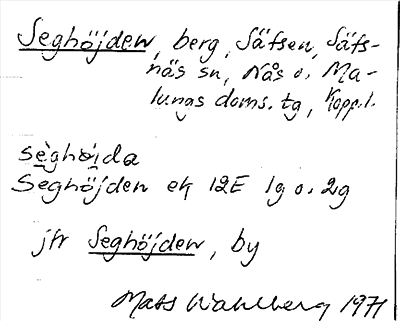 Seghöjden, berg, Säfsen, Säfs-
näs sn, Nås o. Ma-
lungs doms. tg, Kopp.l.
sèghöi̯da
Seghöjden ek 12E 1g o. 2g
jfr Seghöjden, by
Mats Wahlberg 1971